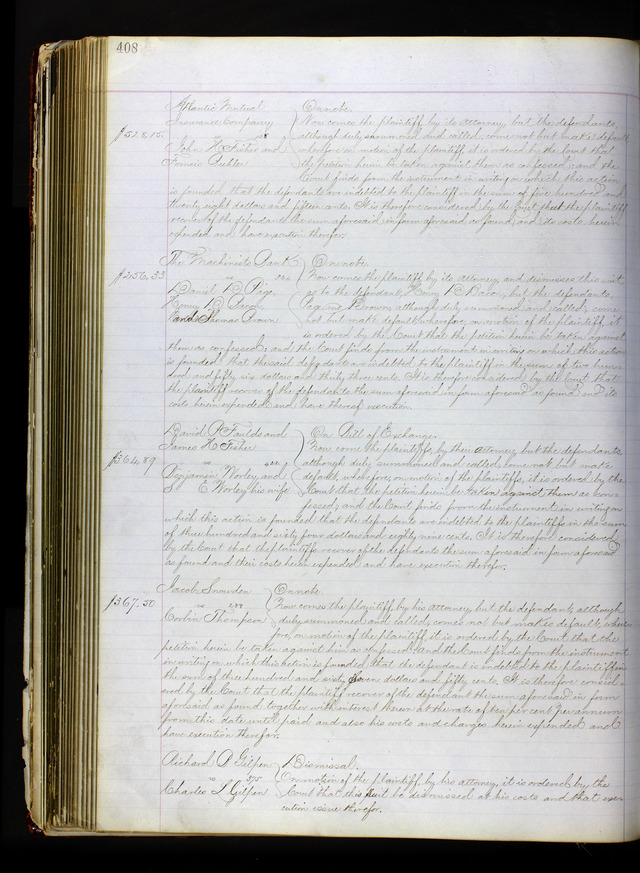 408
Atlantic Mutual
Insurance Company
vs
John H. and
Francis
$528,15.
On note.
Now comes the plaintiff by its attorney, but the defendants,
although duly summoned and called, come not but make default
wherefore on motion of the plaintiff it is ordered by the Court that
the petition herein be taken against them as confessed; and the
Court finds from the instrument in writing on which this action
is founded that the defendants are indebted to the plaintiff in the sum of five hundred and
twenty eight dollars and fifteen cents. It is therefore considered by the Court that the plaintiff
recover of the defendants the sum aforesaid in form aforesaid as found, and its costs herein
expended and have execution therefor.
The Machinists Bank
vs
Daniel D. Page,
Henry D. Bacon
and Thomas Brown
$256,33
On note.
Now comes the plaintiff by its attorney, and dismisses this suit
as to the defendant, Henry D. Bacon, but the defendants,
Page and Brown, although duly summoned and called, come
not but make default, wherefore, on motion of the plaintiff, it
is ordered by the Court that the petition herein be taken against
them as confessed; and the Court finds from the instrument in writing on which this action
is founded that the said defendants are indebted to the plaintiff in the sum of two hun-
dred and fifty six dollars and thirty three cents. It is therefore considered by the Court that
the plaintiff recover of the defendants the sum aforesaid in form aforesaid as found and its
costs herein expended, and have thereof execution.
David P. Faulds and
James H. Fisher
vs
Benjamin Worley and
S E Worley his wife
$364.89
On Bill of Exchange.
Now come the plaintiffs by their attorney, but the defendants
although duly summoned and called, come not but make
default, wherefore, on motion of the plaintiffs, it is ordered by the
Court that the petition herein be taken against them as con-
fessed; and the Court finds from the instrument in writing on
which this action is founded that the defendants are indebted to the plaintiffs in the sum
of three hundred and sixty four dollars and eighty nine cents. It is therefore considered
by the Court that the plaintiffs recover of the defendants the sum aforesaid in form aforesaid
as found and their costs herein expended and have execution therefor.
Jacob Snowden
vs 288
Corbin Thompson
$367.50
On note
Now comes the plaintiff by his attorney, but the defendant, although
duly summoned and called, comes not but makes default, where-
fore, on motion of the plaintiff, it is ordered by the Court that the
petition herein be taken against him as confessed: and the Court finds from the instrument
in writing on which this action is founded, that the defendant is indebted to the plaintiff in
the sum of three hundred and sixty seven dollars and fifty cents. It is therefore consid-
ered by the Court that the plaintiff recover of the defendant the sum aforesaid in form
aforesaid as found together with interest hereon at the rate of ten per cent per annum
from this date until paid and also his costs and charges herein expended and
have execution therefor.
Richard A Gilpin
vs 575
Charles S Gilpin
Dismissal.
On motion of the plaintiff by his attorney, it is ordered by the
Court that this suit be dismissed at his costs and that exe-
cution issue therefor.